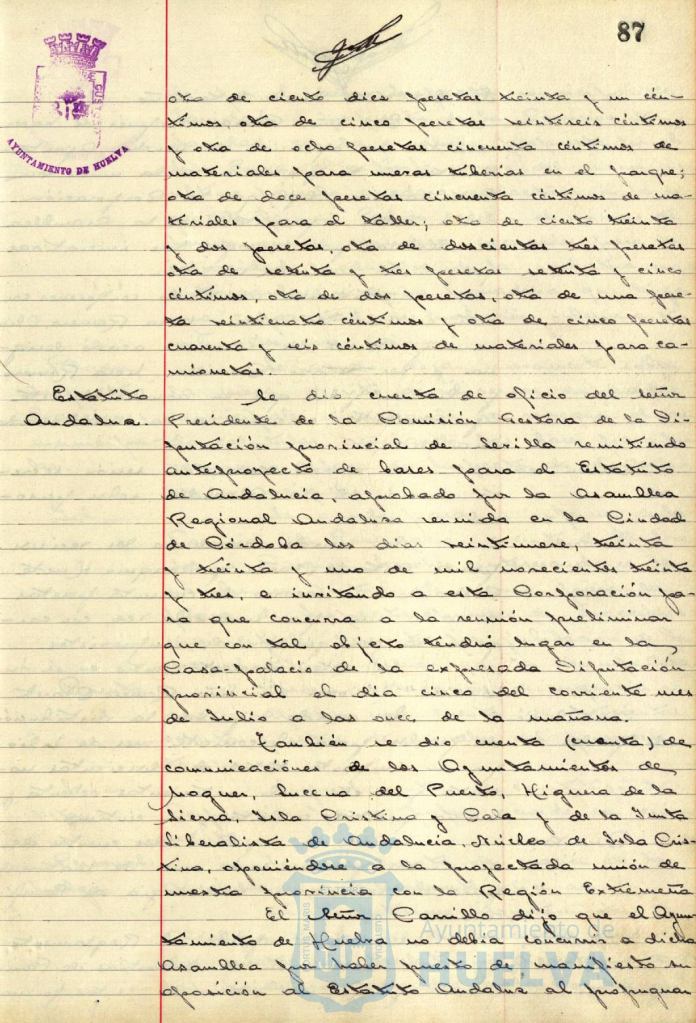 87
AYUNTAMIENTO DE HUELVA
otra de ciento diez pesetas treinta y un cén-
timos, otra de cinco pesetas veintiseis céntimos
y otra de ocho pesetas cincuenta céntimos de
materiales para nuevas tuberías en el parque;
otra de doce pesetas cincuenta céntimos de ma-
teriales para el taller; otra de ciento treinta
y dos pesetas, otra de doscientas tres pesetas
otra de setenta y tres pesetas setenta y cinco
céntimos, otra de dos pesetas, otra de una pese-
ta veinticuatro céntimos y otra de cinco pesetas
cuarenta y seis céntimos de materiales para ca-
mionetas.
Estatuto
Andaluz.
Se dio cuenta de oficio del señor
Presidente de la Comisión Gestora de la Di-
putación provincial de Sevilla remitiendo
anteproyecto de bases para el Estatuto
de Andalucia, aprobado por la Asamblea
Regional Andaluza reunida en la Ciudad
de Córdoba los dias veintinueve, treinta
y treinta y uno de mil novecientos treinta
y tres, e invitando a esta Corporación pa-
ra que concurra a la reunión preliminar
que con tal objeto tendrá lugar en la
Casa-palacio de la expresada Diputación
provincial el dia cinco del corriente mes
de Julio a las once de la mañana.
También se dio cuenta (cuenta) de
comunicaciones de los Ayuntamientos de
Moguer, Lucena del Puerto, Higuera de la
Sierra, Isla Cristina y Cala y de la Junta
Liberalista de Andalucia, Núcleo de Isla Cris-
tina, oponiéndose a la proyectada unión de
nuestra provincia con la Región Extremeña
El Señor Carrillo dijo que el Ayun-
tamiento de Huelva no debia concurrir a dicha
Asamblea por haber puesto de manifiesto su
oposición al Estatuto Andaluz al propugnar
Ayuntamiento de
HUELVA